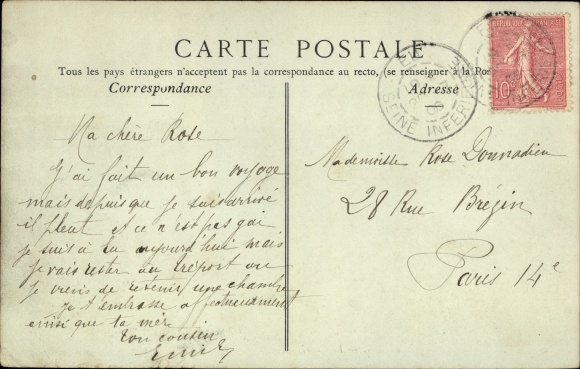 CARTE POSTALE
Tous les pays étrangers n'acceptent pas la correspondance au recto, (se renseigner à la Pos
Correspondance
Adresse
REPUBLIQUE FRANÇAISE
10c
SEINE INFERI
Ma chère Rose
J'ai fait un bon voyage
mais depuis que je suis arrivé
il pleut et ce n'est pas gai
je suis à aujourd'hui mais
je vais rester au tréport ou
je viens de retenir une chambre
Je t embrasse affectueusement
ainsi que ta mère
ton cousin
Emile
Mademoiselle Rose Donnadieu
28 Rue Brézin
Paris 14e